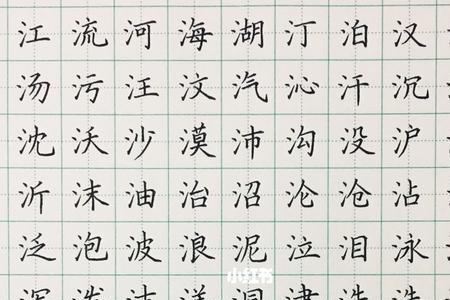 江流河海湖汀泊汉
汤污汪汶汽沁汗沉
沈沃沙漠沛沟没沪
沂沫油治沼沦沧沾
泛泡波浪泥泣泪泳
小红书